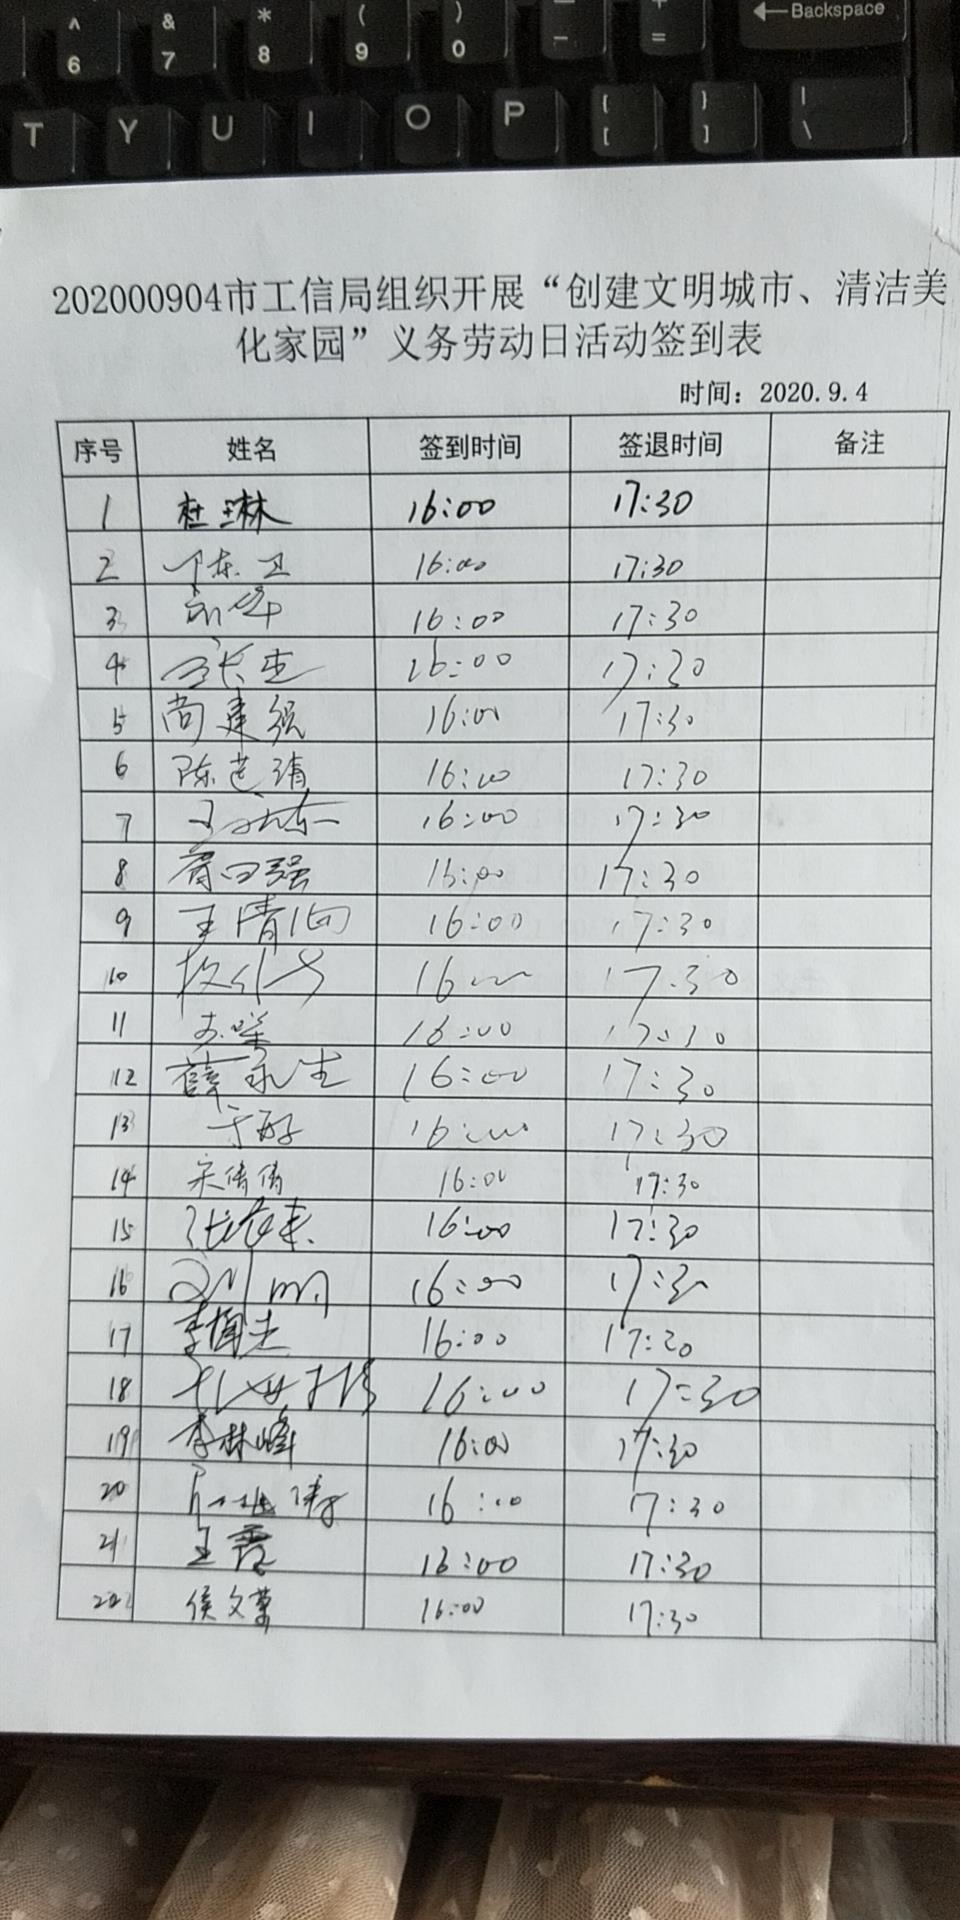 ^ & * ( ) — +
6 7 8 9 0 – = ←Backspace
T Y U I O P { [ } ] | \
202000904市工信局组织开展“创建文明城市、清洁美
化家园”义务劳动日活动签到表
时间：2020.9.4
序号 姓名 签到时间 签退时间 备注
1 杜琳 16:00 17:30
2 陈卫 16:00 17:30
3 16:00 17:30
4 16:00 17:30
5 尚建强 16:00 17:30
6 陈艺靖 16:00 17:30
7 16:00 17:30
8 16:00 17:30
9 王清向 16:00 17:30
10 16:00 17:30
11 16:00 17:30
12 薛永生 16:00 17:30
13 16:00 17:30
14 宋倩倩 16:00 17:30
15 16:00 17:30
16 16:00 17:30
17 16:00 17:20
18 16:00 17:30
19 李林峰 16:00 17:30
20 16:00 17:30
21 王霞 16:00 17:30
22 侯文苹 16:00 17:30